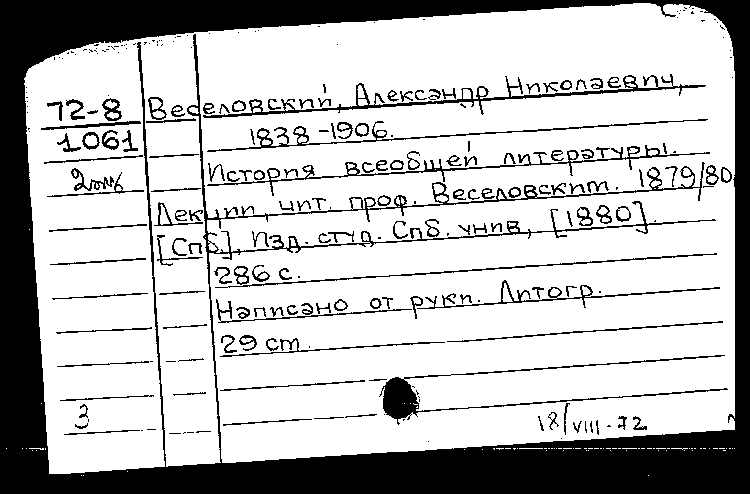 72-8 Веселовский, Александр Николаевич,
1061 1838-1906.
История всеобщей литературы.
Лекции, чит. проф. Веселовским. 1879/80
[Спб], Изд. студ. Спб. унив, [1880].
286 с.
Написано от рукп. Литогр.
29 cm.
3
18/VIII-72